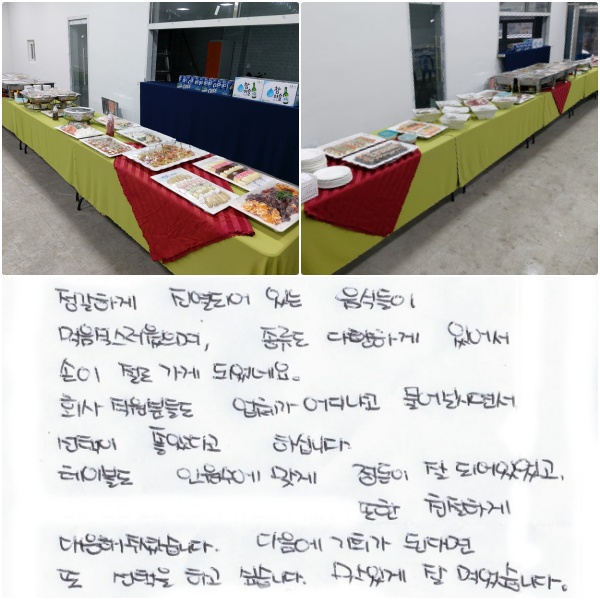 정갈하게 진열되어 있는 음식들이
먹음직스러웠으며, 종류도 다양하게 있어서
손이 절로 가게 되었네요.
회사 직원분들도 업체가 어디냐고 물어보시면서
선택이 좋았다고 하십니다.
테이블도 인원수에 맞게 정돈이 잘 되어있었고,
또한 친절하게
대응해주셨습니다. 다음에 기회가 된다면
또 선택을 하고 싶습니다. 맛있게 잘 먹었습니다.